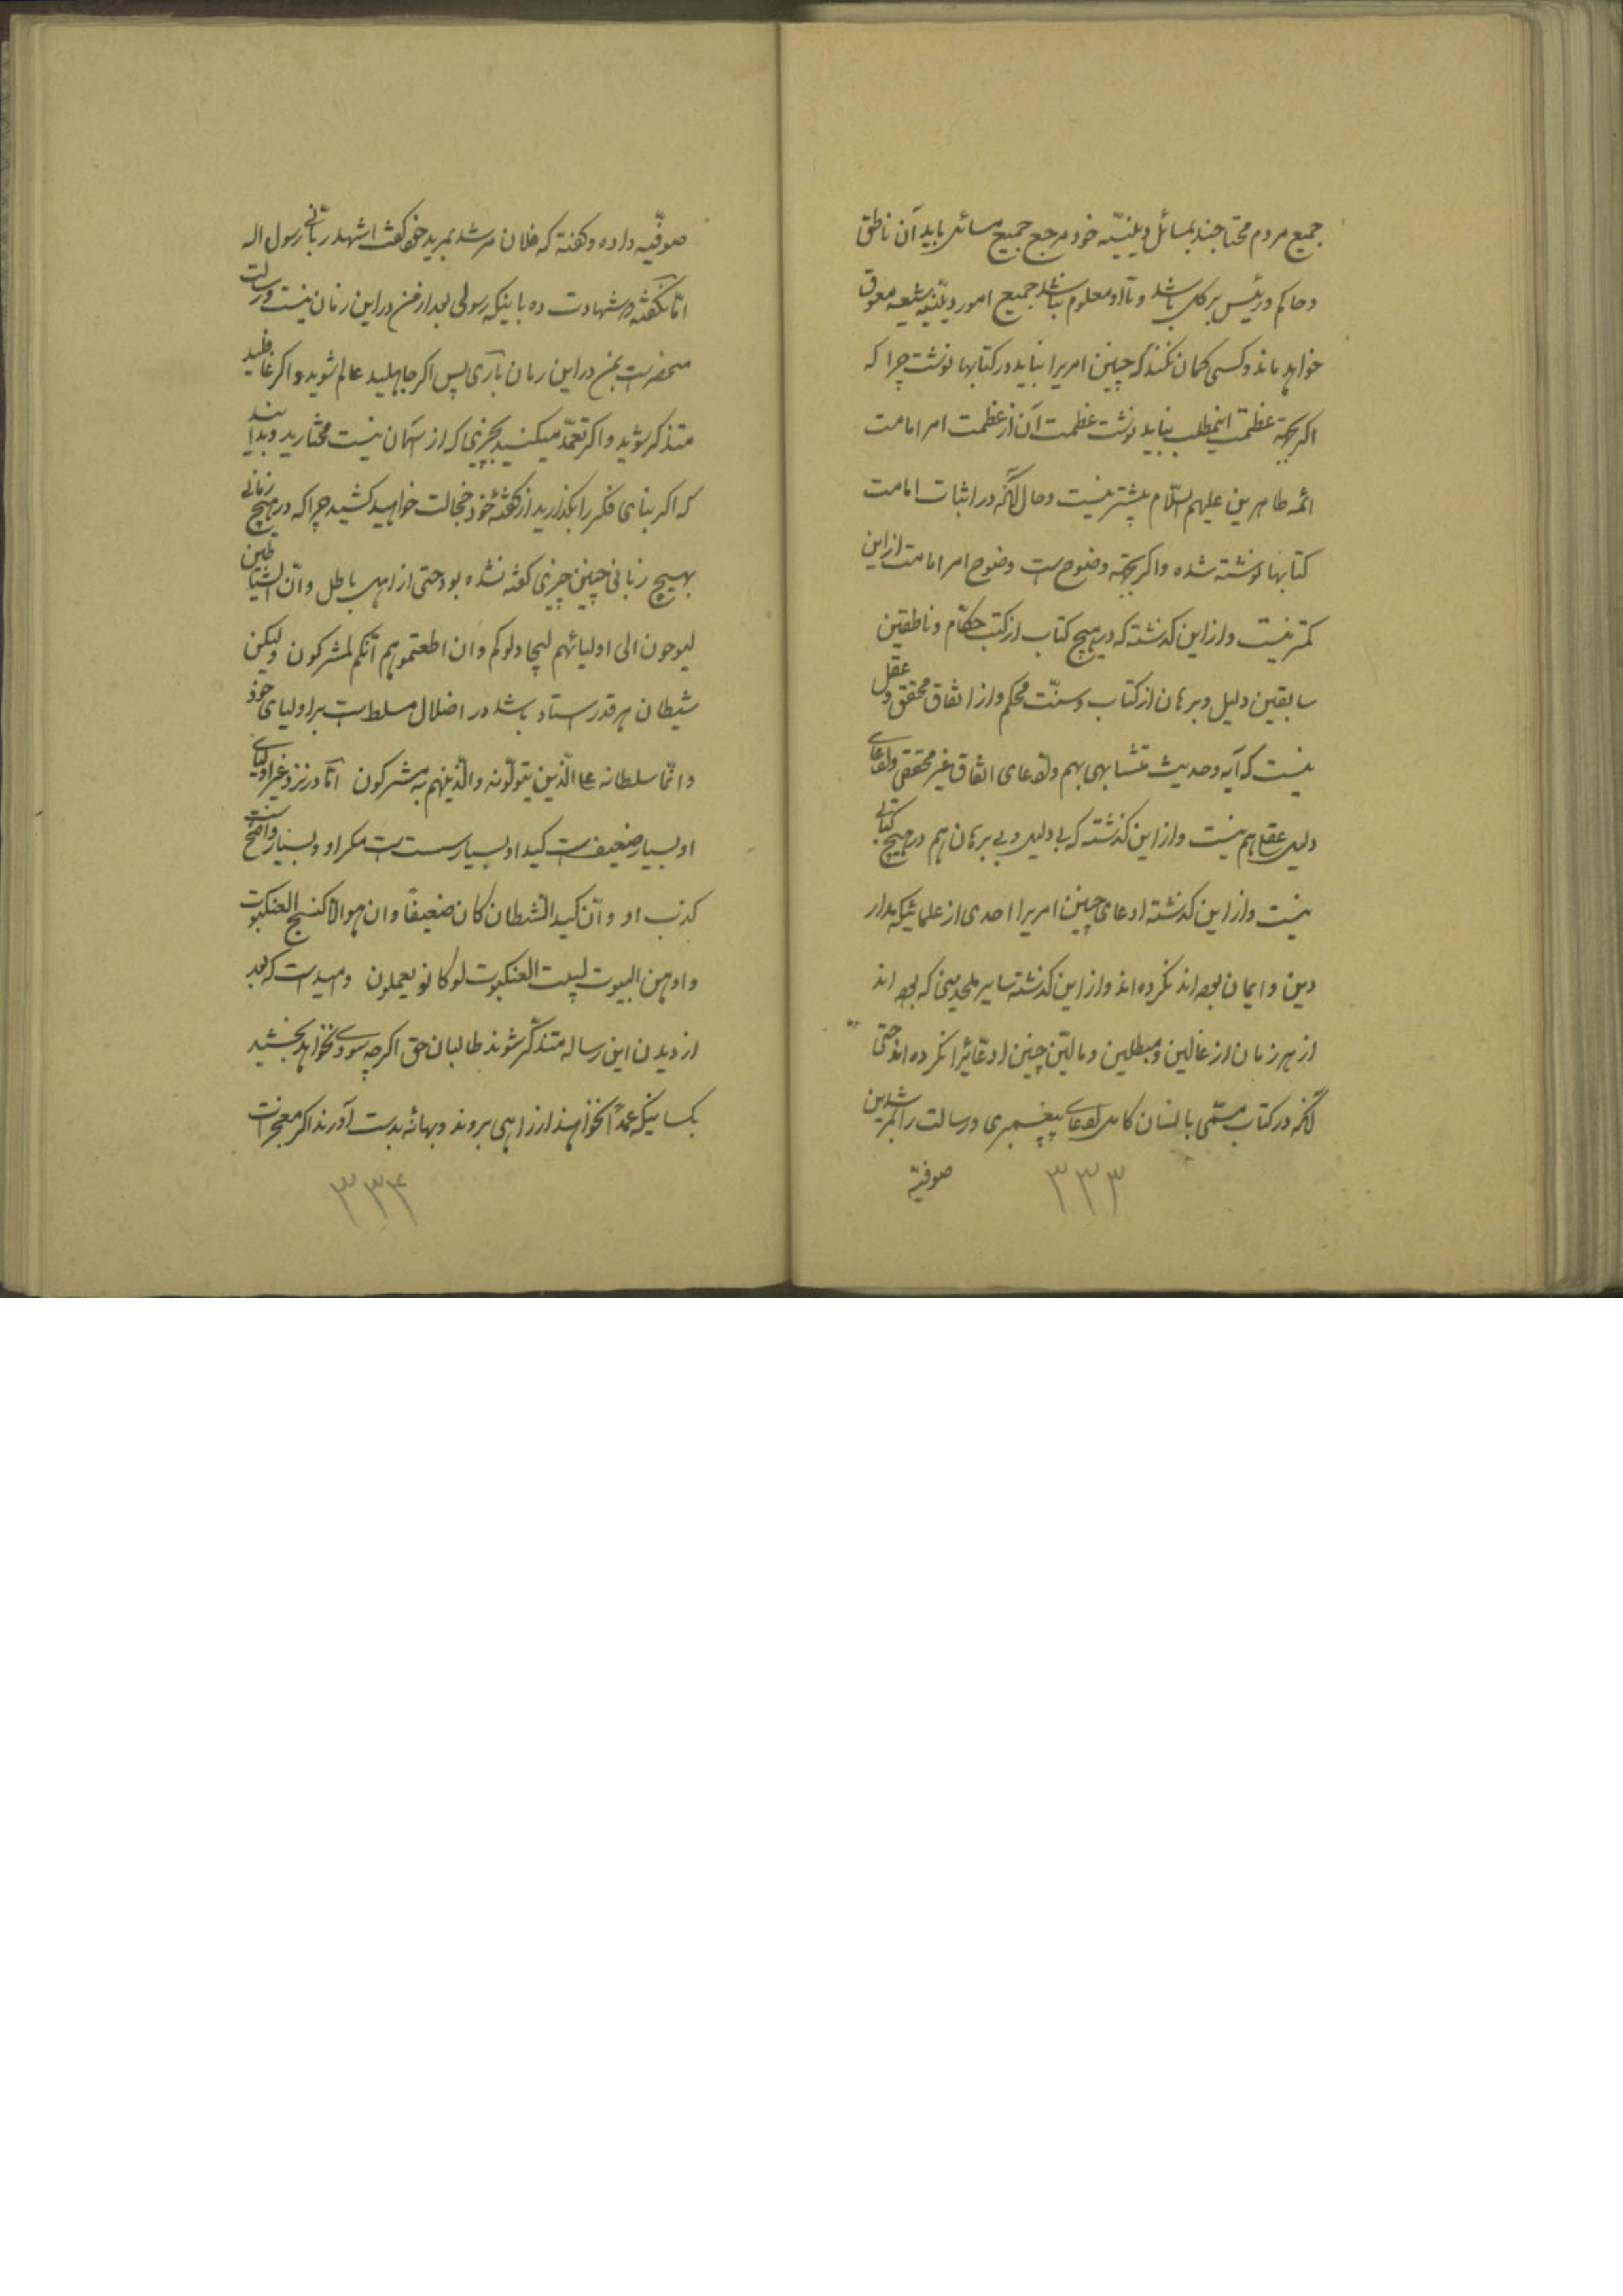 جمیع مردم محتاجند بمسائل دینیّه خود مرجع جمیع مسائل باید آن ناطق
و حاکم و رئیس بر کل باشد و تا او معلوم نباشد جمیع امور دینیّه شیعه معوق
خواهد ماند و کسی کمان نکند که چنین امریرا نباید در کتابها نوشت چرا که
اکر بجهة عظمت اینمطلب نباید نوشت عظمت آن از عظمت امر امامت
ائمه طاهرین علیهم السّلام بیشتر نیست و حال آنکه در اثبات امامت
کتابها نوشته شده و اکر بجهة وضوح است وضوح امر امامت از این
کمتر نیست و از این کذشته که در هیچ کتاب از کتب حکّام و ناطقین
سابقین دلیل و برهان از کتاب و سنّت محکم و از اتفاق محقق و عقل
نیست که آیه و حدیث متشابهی بهم و ادعای اتفاق غیر محققی و ادعای
دلیل عقل هم نیست و از این کذشته که بی دلیل و بی برهان هم در هیچ کتابی
نیست و از این کذشته ادعای چنین امریرا احدی از علمائیکه مدار
دین و ایمان بوده اند نکرده اند و از این کذشته سایر ملحدینی که بوده اند
از هر زمان از غالین و مبطلین و مالّین چنین ادّعائیرا نکرده اند حتی
آنکه در کتاب مسمّی بانسان کامل ادعای پیغمبری و رسالت را بمرشدین
صوفیّه
۳۳۳
صوفیّه داده و کفته که فلان مرشد بمرید خود کفت اشهد بانّی رسول الله
امّا نکفته و شهادت ده باینکه رسولی بعد از من در این زمان نیست و رسالت
منحصر است بمن در این زمان باری پس اکر جاهلید عالم شوید و اکر غافلید
متذکر شوید و اکر تعمّد میکنید بچیزی که از آسمان نیست مختارید و بدانید
که اکر بنای فکر را بکذارید از کفتهٔ خود خجالت خواهید کشید چرا که در هیچ زمانی
بهیچ زبانی چنین چیزی کفته نشده بود حتی از اهل باطل و انّ الشیاطین
لیوحون الی اولیائهم لیجادلوکم و ان اطعتموهم انّکم لمشرکون و لیکن
شیطان هر قدر استاد باشد در اضلال مسلط است بر اولیای خود
و انّما سلطانه علی الّذین یتولّونه و الّذینهم به مشرکون امّا در نزد غیر اولیای
او بسیار ضعیف است کید او بسیار سست است مکر او و بسیار واضح است
کذب او و انّ کید الشیطان کان ضعیفاً و ان هو الّا کنسج العنکبوت
و اوهن البیوت لبیت العنکبوت لو کانو یعملون و امید است که بعد
از دیدن این رساله متذکّر شوند طالبان حق اکرچه سودی نخواهد بخشید
بکسانیکه عمداً نخواهند از راهی بروند و بهانهٔ بدست آورند اکر معجزات
۳۳۴